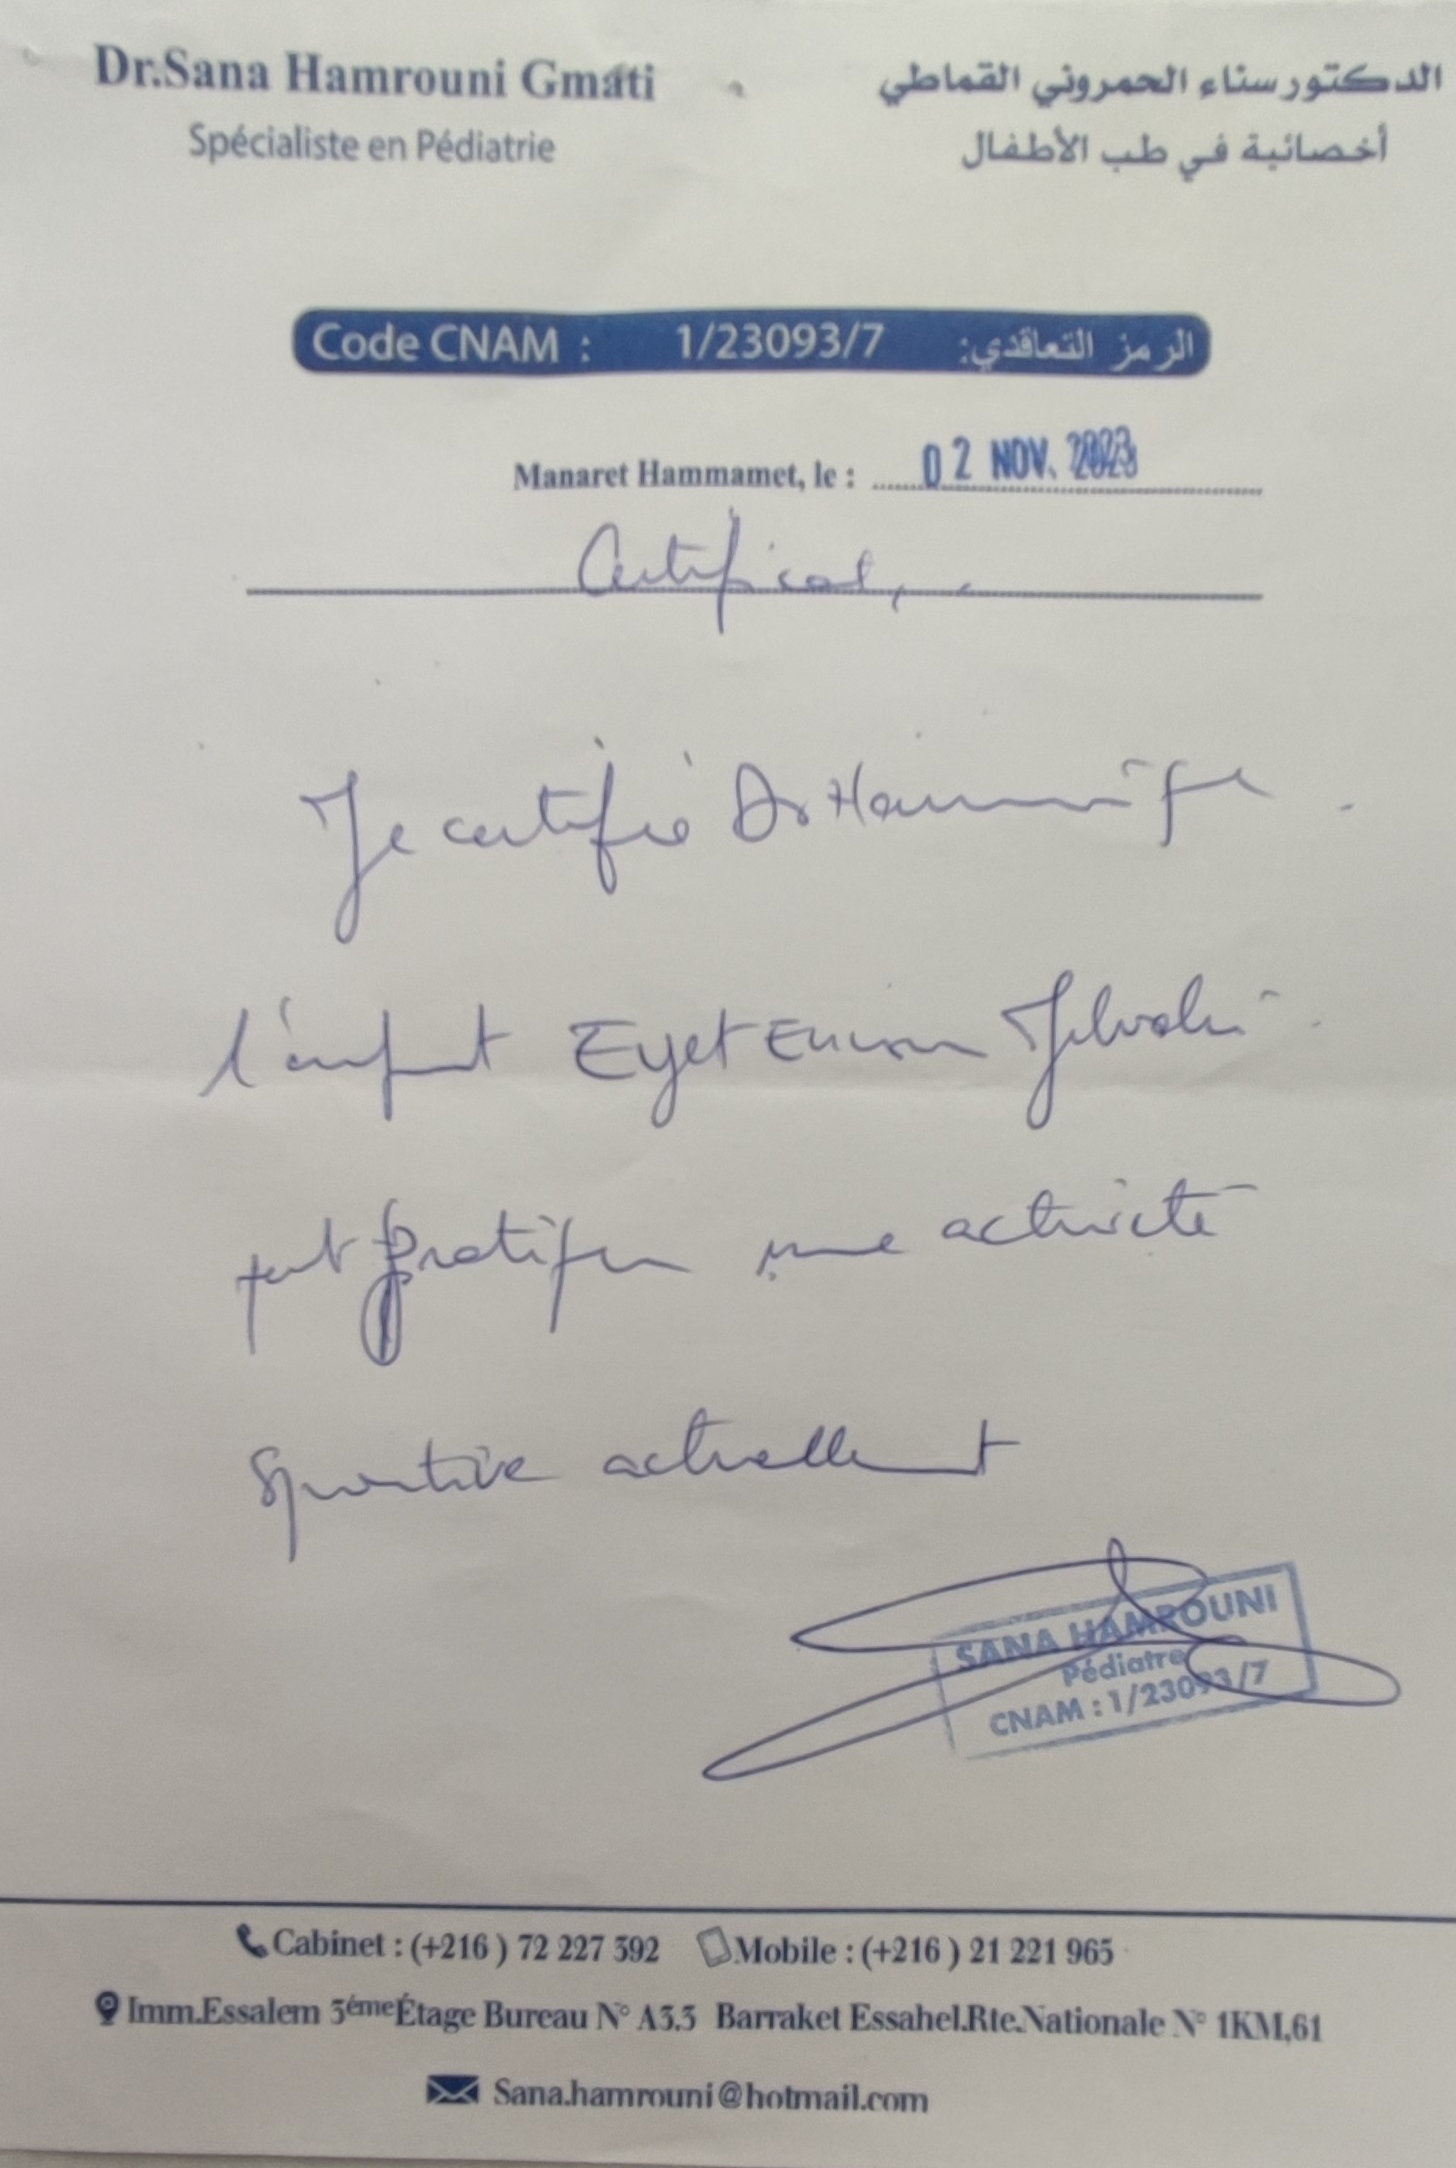 Dr.Sana Hamrouni Gmati
Spécialiste en Pédiatrie
الدكتور سناء الحمروني القماطي
أخصائية في طب الأطفال
Code CNAM : 1/23093/7 الرمز التعاقدي:
Manaret Hammamet, le : 02 NOV. 2023
Certificat
Je certifie Dr Hamrouni que
l'enfant Eyet
peut pratiquer une activité
sportive actuellement
SANA HAMROUNI
Pédiatre
CNAM : 1/23093/7
Cabinet : (+216 ) 72 227 392 Mobile : (+216 ) 21 221 965
Imm.Essalem 3éme Étage Bureau N° A3.3 Barraket Essahel.Rte.Nationale N° 1KM,61
Sana.hamrouni@hotmail.com